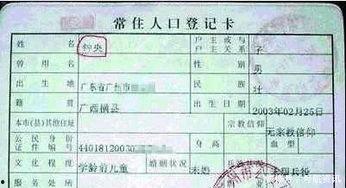 常住人口登记卡
姓名 钟央 户主或与户主关系 子
曾用名 性别 男
出生地 广东省广州市 民族 壮
籍贯 广西横县 出生日期 2003年02月25日
本市(县)其他住址 宗教信仰 无宗教信仰
公民身份证件编号 44018120030 身高 血型
文化程度 学龄前儿童 婚姻状况 未婚 兵役状况 未服兵役
服务处所